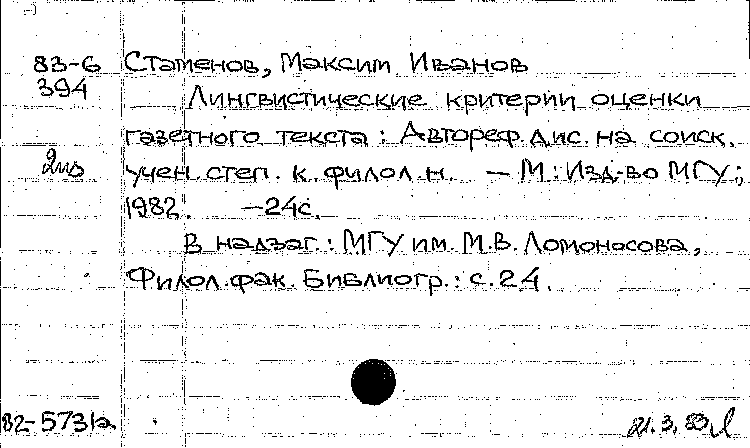 83-6 Стаменов, Максим Иванов
394 Лингвистические критерии оценки
газетного текста : Автореф. дис. на соиск.
учен. степ. к. филол. н. — М : Изд-во МГУ ;
1982. —24с.
В надзаг. : МГУ им. М.В. Ломоносова,
Филол. фак. Библиогр. : с. 24.
82-5731а 21.3.83